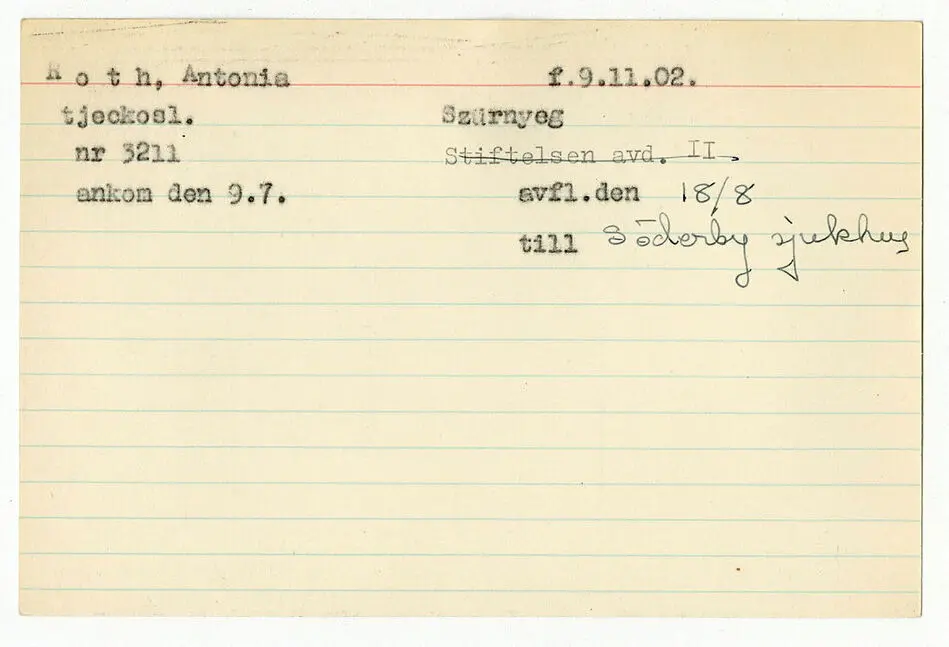 R o t h, Antonia f.9.11.02.
tjeckosl. Szürnyeg
nr 3211 Stiftelsen avd. II.
ankom den 9.7. avfl.den 18/8
till Söderby sjukhus